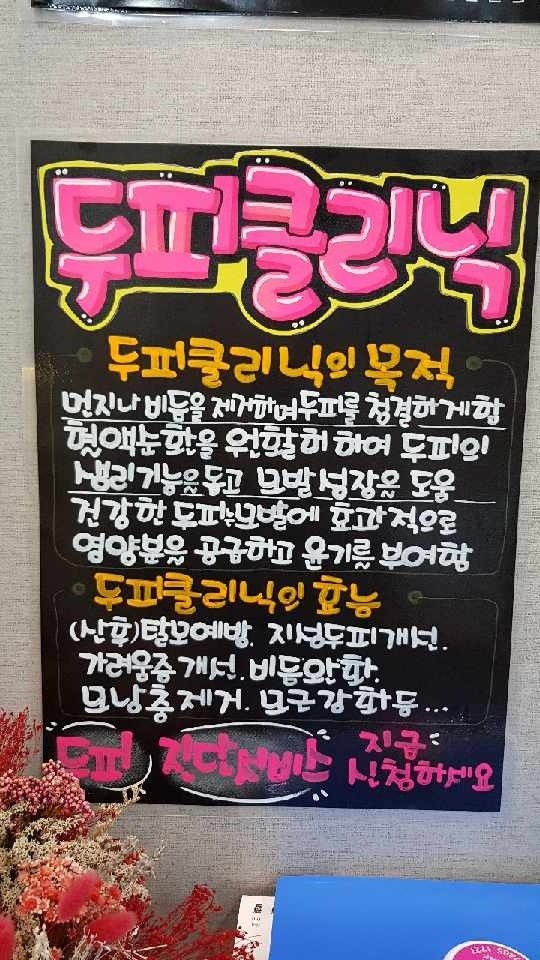 두피클리닉
두피클리닉의 목적
먼지나 비듬을 제거하며 두피를 청결하게함
혈액순환을 원활히 하여 두피의
생리기능을 돕고 모발 성장을 도움
건강한 두피는 모발에 효과적으로
영양분을 공급하고 윤기를 부여함
두피클리닉의 효능
(산후)탈모예방. 지성두피개선.
가려움증 개선. 비듬완화.
모낭충제거. 모근강화등...
두피 진단서비스 지금
신청하세요